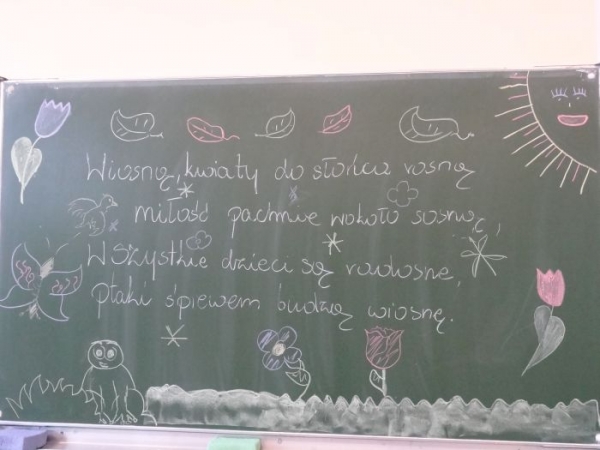 Wiosną, kwiaty do słońca rosną
miłość pachnie wokoło sosną,
Wszystkie dzieci są radosne,
ptaki śpiewem budzą wiosnę.